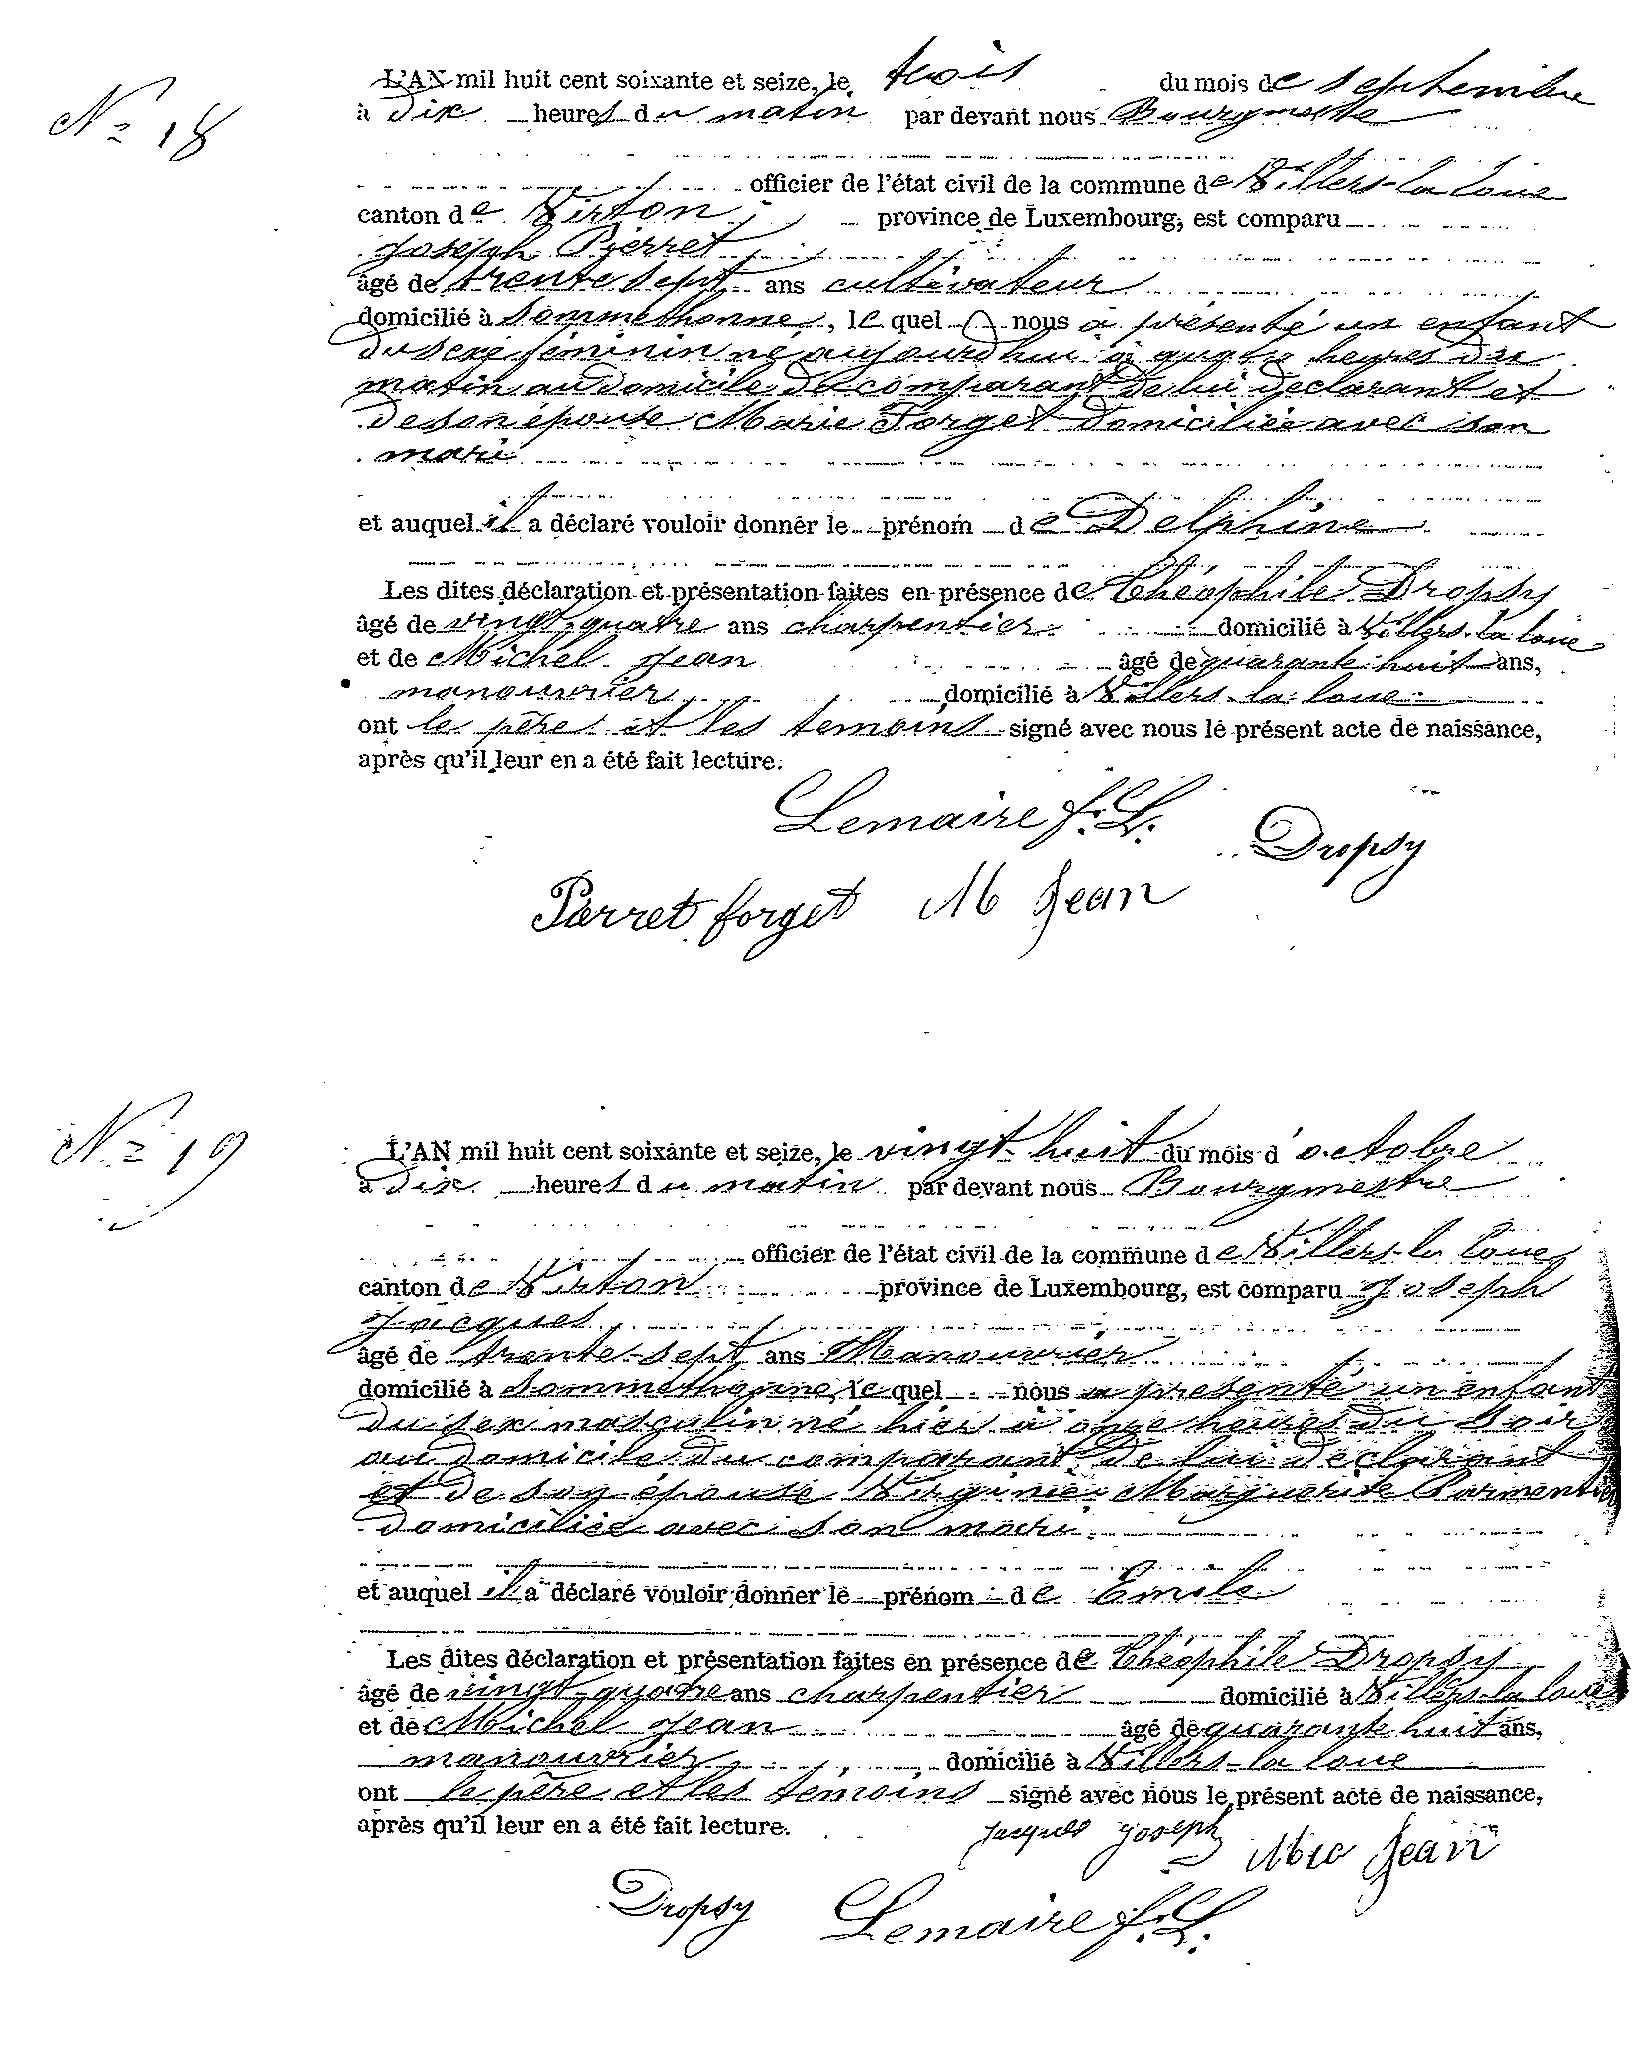 N° 18
L'AN mil huit cent soixante et seize, le trois du mois de septembre
à dix heures du matin par devant nous Bourgmestre
officier de l'état civil de la commune de Villers-la loue
canton de Virton province de Luxembourg, est comparu
Joseph Pierret
âgé de trente sept ans cultivateur
domicilié à Sommethonne, le quel nous a présenté un enfant
du sexe féminin né aujourd'hui à quatre heures du
matin au domicile du comparant de lui déclarant et
de son épouse Marie Forget domiciliée avec son
mari
et auquel il a déclaré vouloir donner le prénom de Delphine
Les dites déclaration et présentation faites en présence de Théophile Dropsy
âgé de vingt-quatre ans charpentier domicilié à Villers-la loue
et de Michel Jean âgé de quarante huit ans,
manouvrier domicilié à Villers-la loue
ont le père et les temoins signé avec nous le présent acte de naissance,
après qu'il leur en a été fait lecture.
Lemaire f. L.
Dropsy
Pierret forget M Jean
N° 19
L'AN mil huit cent soixante et seize, le vingt-huit du mois d'octobre
à dix heures du matin par devant nous Bourgmestre
officier de l'état civil de la commune de Villers-la loue
canton de Virton province de Luxembourg, est comparu Joseph
Jacques
âgé de trente-sept ans Manouvrier
domicilié à Sommethonne, le quel nous a présenté un enfant
du sex masculin né hier à onze heures du soir
au domicile du comparant de lui déclarant
et de son épouse Virginie Marguerite Parmentier
domiciliée avec son mari
et auquel il a déclaré vouloir donner le prénom de Emile
Les dites déclaration et présentation faites en présence de Théophile Dropsy
âgé de vingt-quatre ans charpentier domicilié à Villers-la loue
et de Michel Jean âgé de quarante huit ans,
manouvrier domicilié à Villers-la loue
ont le père et les temoins signé avec nous le présent acte de naissance,
après qu'il leur en a été fait lecture.
Jacques Joseph
Mic Jean
Dropsy Lemaire f. L.